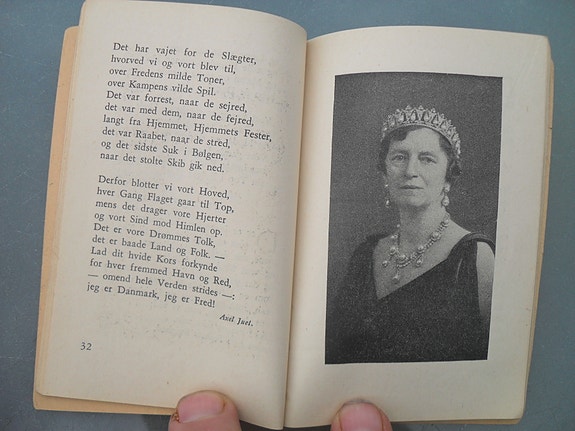 Det har vajet for de Slægter,
hvorved vi og vort blev til,
over Fredens milde Toner,
over Kampens vilde Spil.
Det var forrest, naar de sejred,
det var med dem, naar de fejred,
langt fra Hjemmet, Hjemmets Fester,
det var Raabet, naar de stred,
og det sidste Suk i Bølgen,
naar det stolte Skib gik ned.
Derfor blotter vi vort Hoved,
hver Gang Flaget gaar til Top,
mens det drager vore Hjerter
og vort Sind mod Himlen op.
Det er vore Drømmes Tolk,
det er baade Land og Folk. —
Lad dit hvide Kors forkynde
for hver fremmed Havn og Red,
— omend hele Verden strides —:
jeg er Danmark, jeg er Fred!
Axel Juel.
32